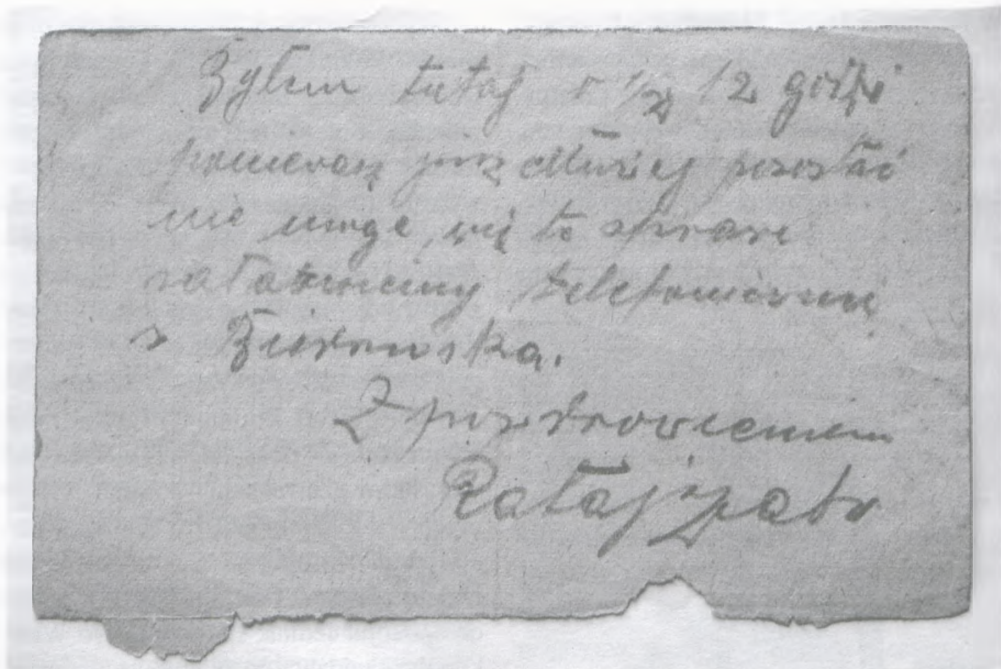 Byłem tutaj o 1/2 12 godz
ponieważ już dłużej pozostać
nie mogę, więc tę sprawę
załatwimy telefonicznie
z
Z pozdrowieniem
Ratajzpatr